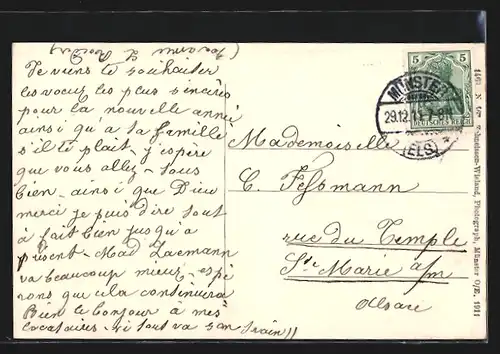 Je viens te souhaiter
les voeux les plus sincères
pour la nouvelle année
ainsi qu'à ta famille
s'il te plait. J'espère
que vous allez tous
bien ainsi que Dieu
merci je puis dire tout
à fait bien jusqu'à
présent. Mad
va beaucoup mieux, espé
rons que cela continuera
Bien le bonjour à mes
locataires. si tout va son train!!
Mademoiselle
C. Fessmann
rue du Temple
Ste Marie a/m
Alsace
5 5
DEUTSCHES REICH
MÜNSTER
29.12.11.
(ELS)
Photograph, Münster O/E. 1911